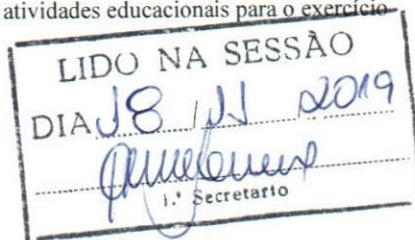 atividades educacionais para o exercício
LIDO NA SESSÃO
DIA 18 / 11 2019
1.º Secretario